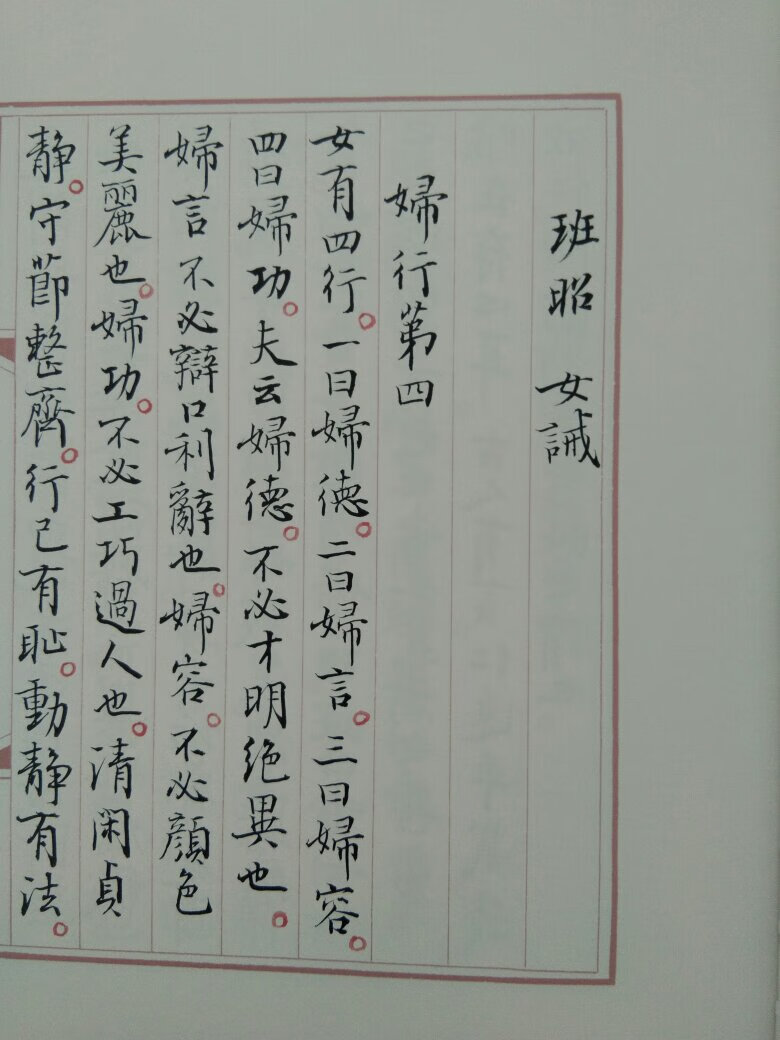 班昭 女誡
婦行第四
女有四行。一曰婦德。二曰婦言。三曰婦容。
四曰婦功。夫云婦德。不必才明絶異也。
婦言不必辯口利辭也。婦容。不必顔色
美麗也。婦功。不必工巧過人也。清閑貞
静。守節整齊。行己有恥。動静有法。